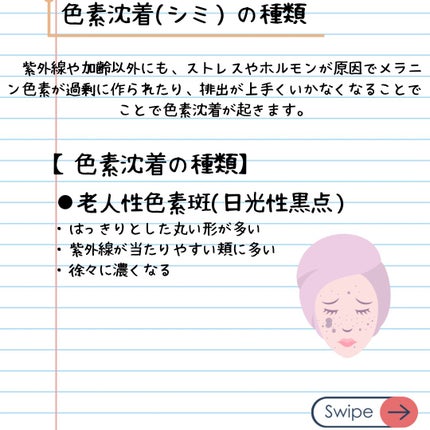 色素沈着(シミ)の種類
紫外線や加齢以外にも、ストレスやホルモンが原因でメラニ
ン色素が過剰に作られたり、排出が上手くいかなくなることで
ことで色素沈着が起きます。
【 色素沈着の種類】
●老人性色素斑(日光性黒点)
・はっきりとした丸い形が多い
・紫外線が当たりやすい頬に多い
・徐々に濃くなる
Swipe